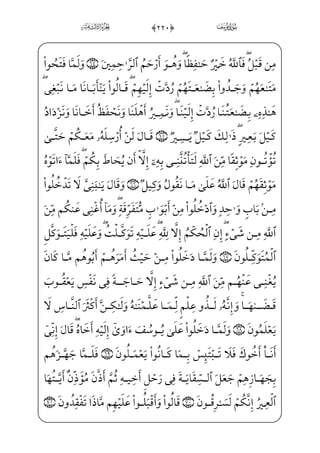 سُورَةُ يُوسُفَ ﴿٢٢٠﴾ الجُزْءُ الثَّالِثَ عَشَرَ
مِن قَبْلُ ۖ فَٱللَّهُ خَيْرٌ حَـٰفِظًا ۖ وَهُوَ أَرْحَمُ ٱلرَّٰحِمِينَ ۝٦٤ وَلَمَّا فَتَحُوا۟
مَتَـٰعَهُمْ وَجَدُوا۟ بِضَـٰعَتَهُمْ رُدَّتْ إِلَيْهِمْ ۖ قَالُوا۟ يَـٰٓأَبَانَا مَا نَبْغِى ۖ
هَـٰذِهِۦ بِضَـٰعَتُنَا رُدَّتْ إِلَيْنَا ۖ وَنَمِيرُ أَهْلَنَا وَنَحْفَظُ أَخَانَا وَنَزْدَادُ
كَيْلَ بَعِيرٍ ۖ ذَٰلِكَ كَيْلٌ يَسِيرٌ ۝٦٥ قَالَ لَنْ أُرْسِلَهُۥ مَعَكُمْ حَتَّىٰ
تُؤْتُونِ مَوْثِقًا مِّنَ ٱللَّهِ لَتَأْتُنَّنِى بِهِۦٓ إِلَّآ أَن يُحَاطَ بِكُمْ ۖ فَلَمَّآ ءَاتَوْهُ
مَوْثِقَهُمْ قَالَ ٱللَّهُ عَلَىٰ مَا نَقُولُ وَكِيلٌ ۝٦٦ وَقَالَ يَـٰبَنِىَّ لَا تَدْخُلُوا۟
مِنۢ بَابٍ وَٰحِدٍ وَٱدْخُلُوا۟ مِنْ أَبْوَٰبٍ مُّتَفَرِّقَةٍ ۖ وَمَآ أُغْنِى عَنكُم مِّنَ
ٱللَّهِ مِن شَىْءٍ ۖ إِنِ ٱلْحُكْمُ إِلَّا لِلَّهِ ۖ عَلَيْهِ تَوَكَّلْتُ ۖ وَعَلَيْهِ فَلْيَتَوَكَّلِ
ٱلْمُتَوَكِّلُونَ ۝٦٧ وَلَمَّا دَخَلُوا۟ مِنْ حَيْثُ أَمَرَهُمْ أَبُوهُم مَّا كَانَ
يُغْنِى عَنْهُم مِّنَ ٱللَّهِ مِن شَىْءٍ إِلَّا حَاجَةً فِى نَفْسِ يَعْقُوبَ
قَضَىٰهَا ۚ وَإِنَّهُۥ لَذُو عِلْمٍ لِّمَا عَلَّمْنَـٰهُ وَلَـٰكِنَّ أَكْثَرَ ٱلنَّاسِ لَا
يَعْلَمُونَ ۝٦٨ وَلَمَّا دَخَلُوا۟ عَلَىٰ يُوسُفَ ءَاوَىٰٓ إِلَيْهِ أَخَاهُ ۖ قَالَ إِنِّىٓ
أَنَا۠ أَخُوكَ فَلَا تَبْتَئِسْ بِمَا كَانُوا۟ يَعْمَلُونَ ۝٦٩ فَلَمَّا جَهَّزَهُم
بِجَهَازِهِمْ جَعَلَ ٱلسِّقَايَةَ فِى رَحْلِ أَخِيهِ ثُمَّ أَذَّنَ مُؤَذِّنٌ أَيَّتُهَا
ٱلْعِيرُ إِنَّكُمْ لَسَـٰرِقُونَ ۝٧٠ قَالُوا۟ وَأَقْبَلُوا۟ عَلَيْهِم مَّاذَا تَفْقِدُونَ ۝٧١